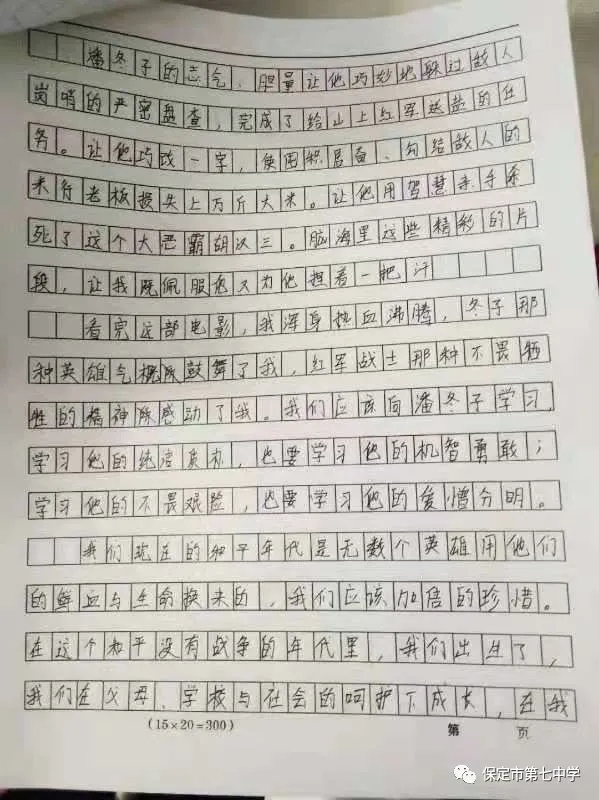 潘冬子的志气、胆量让他巧妙地躲过敌人
岗哨的严密盘查，完成了给山上红军送盐的任
务。让他巧改一字，使用积居奇、勾结敌人的
米行老板损失上万斤大米。让他用智慧亲手杀
死了这个大恶霸胡汉三。脑海里这些精彩的片
段，让我既佩服他又为他捏着一把汗
看完这部电影，我浑身热血沸腾，冬子那
种英雄气概鼓舞了我，红军战士那种不畏牺
牲的精神感动了我。我们应该向潘冬子学习，
学习他的纯洁质朴，也要学习他的机智勇敢；
学习他的不畏艰险，也要学习他的爱憎分明。
我们现在的和平年代是无数个英雄用他们
的鲜血与生命换来的，我们应该加倍的珍惜。
在这个和平没有战争的年代里，我们出生了，
我们在父母、学校与社会的呵护下成长，在我
(15×20=300)
第 页
保定市第七中学